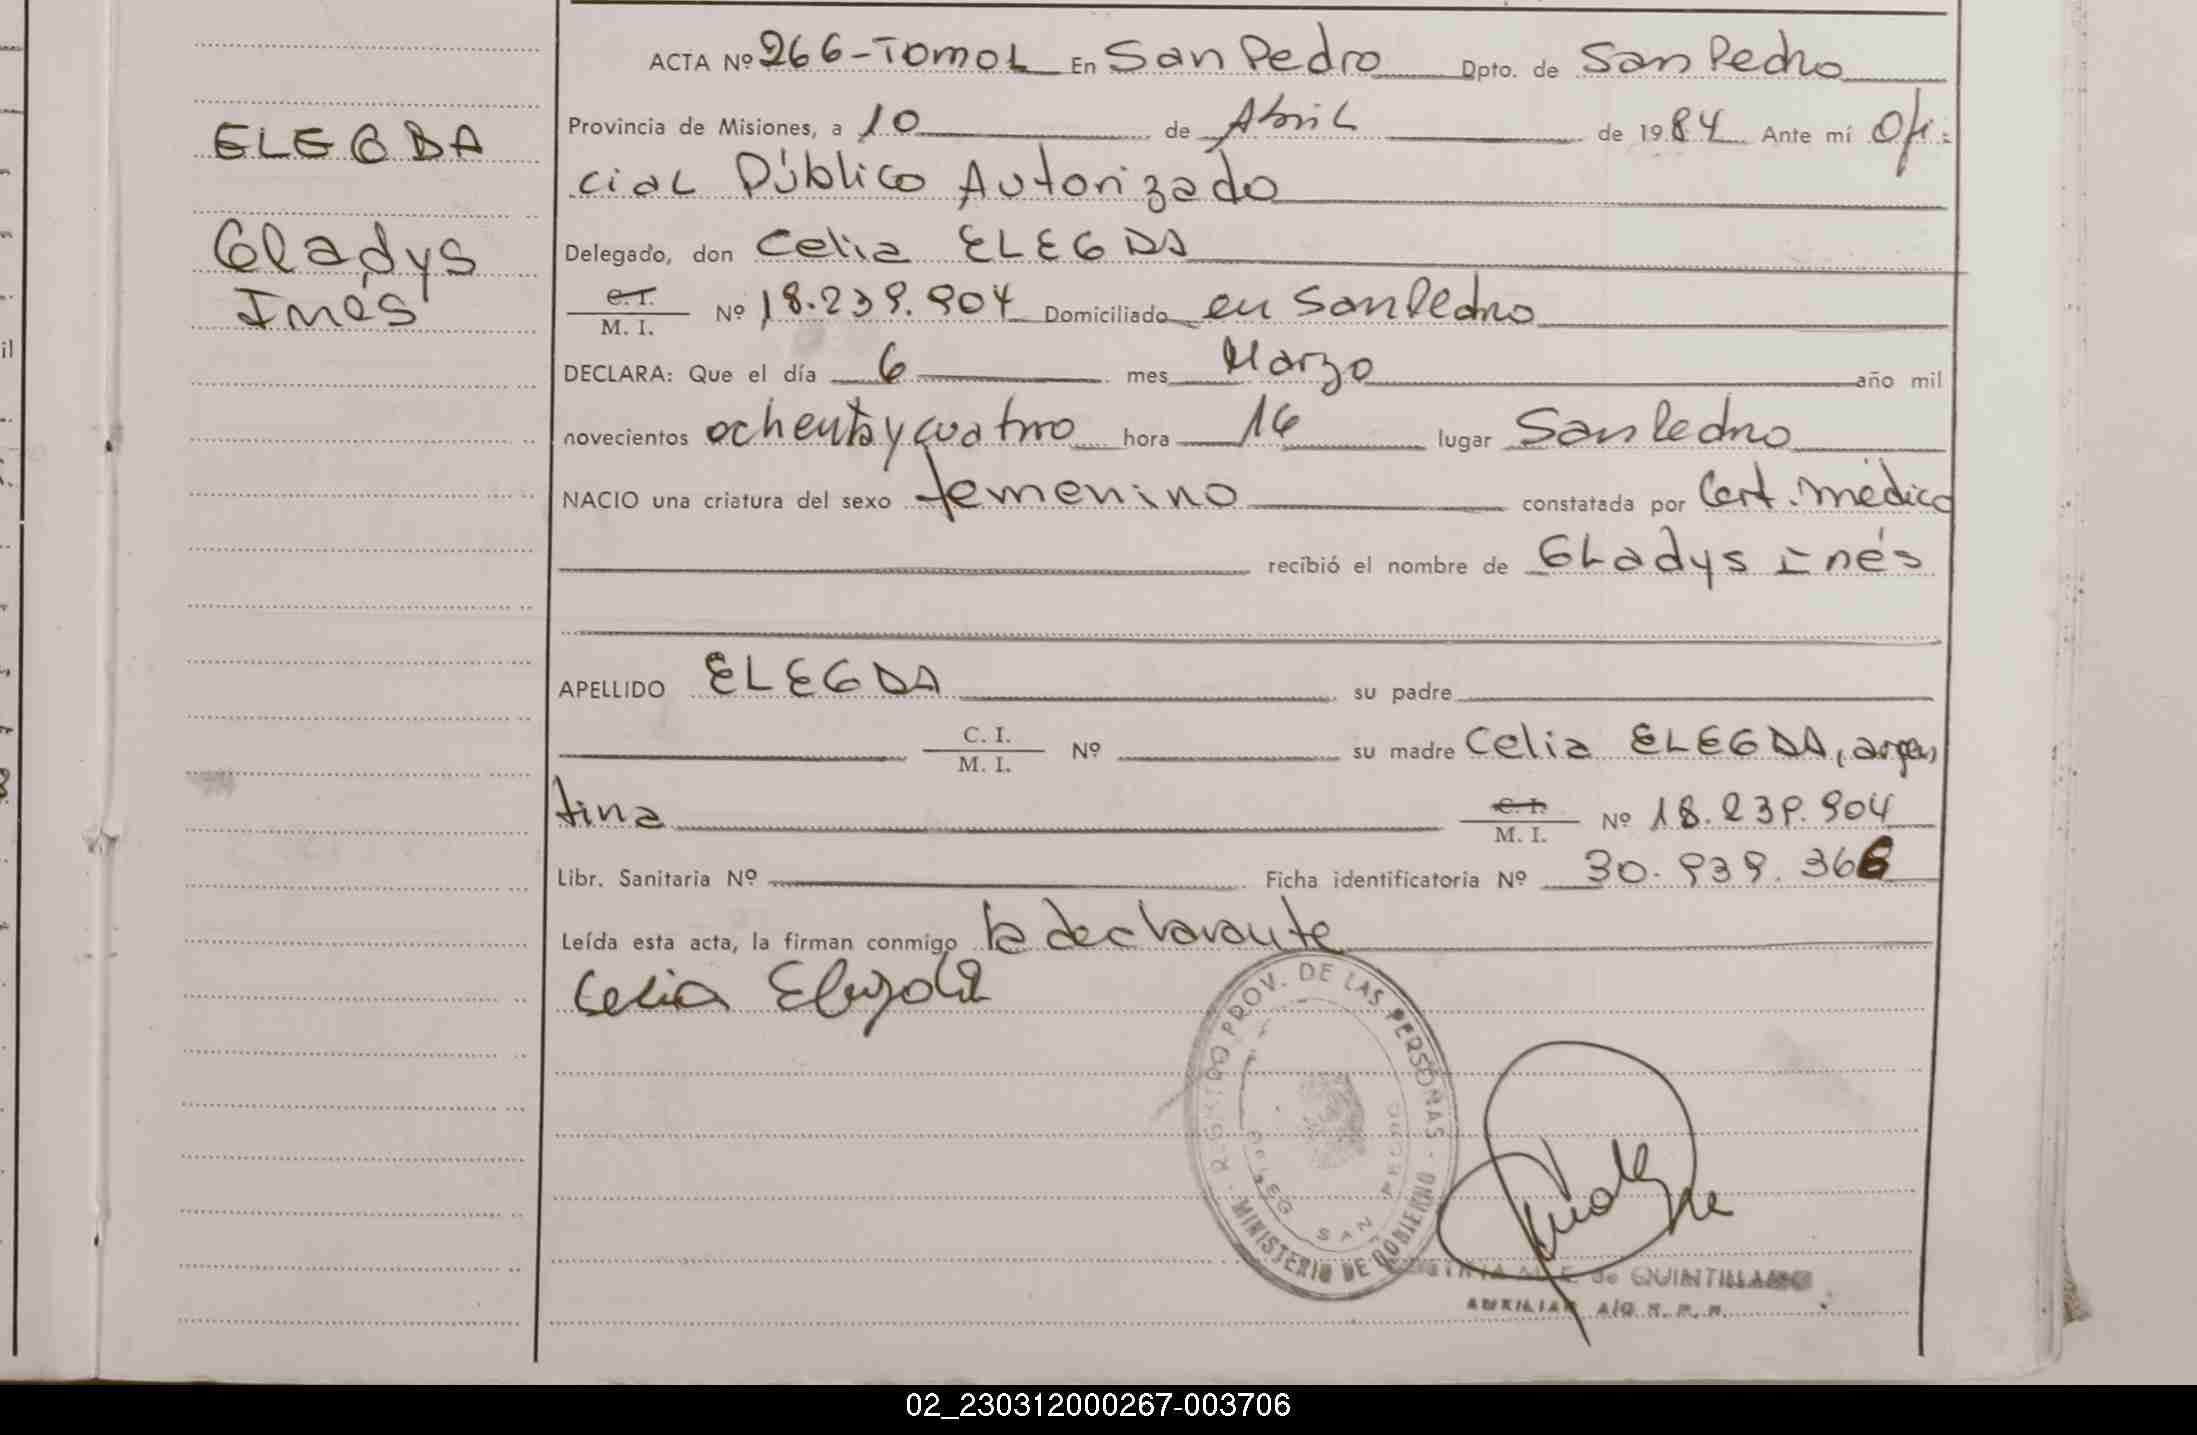 ACTA Nº 266-TOMO L En San Pedro Dpto. de San Pedro
ELEGDA
Provincia de Misiones, a 10 de Abril de 1984 Ante mí Ofi-
cial Público Autorizado
Gladys
Delegado, don Celia ELEGDA
Inés
C. I.
M. I. Nº 18.239.904 Domiciliado en San Pedro
DECLARA: Que el día 6 mes Marzo año mil
novecientos ochenta y cuatro hora 16 lugar San Pedro
NACIO una criatura del sexo femenino constatada por Cert. médico
recibió el nombre de Gladys Inés
APELLIDO ELEGDA su padre
C. I.
M. I. Nº su madre Celia ELEGDA, argen
tina C. I.
M. I. Nº 18.239.904
Libr. Sanitaria Nº Ficha identificatoria Nº 30.939.366
Leída esta acta, la firman conmigo la declarante
Celia
PROV. DE LAS PERSONAS
DELEG SAN PEDRO
MINISTERIO DE GOBIERNO
de QUINTILLANO
AUXILIAR A/C R. P. P.
02_230312000267-003706